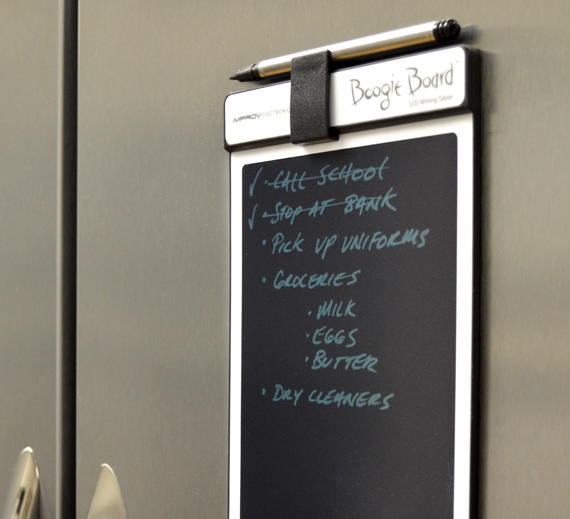 IMPROV ELECTRONICS
Boogie Board
LCD Writing Tablet
✓ · CALL SCHOOL
✓ · STOP AT BANK
· PICK UP UNIFORMS
· GROCERIES
· MILK
· EGGS
· BUTTER
· DRY CLEANERS